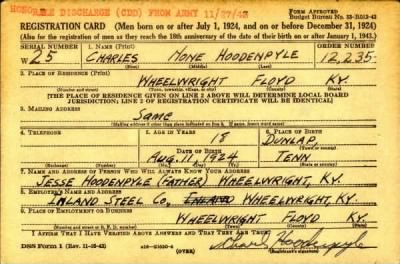 HONORABLE DISCHARGE (CDD) FROM ARMY 11/27/43
REGISTRATION CARD (Men born on or after July 1, 1924, and on or before December 31, 1924)
FORM APPROVED
Budget Bureau No. 33-R013-42
(Also for the registration of men as they reach the 18th anniversary of the date of their birth on or after January 1, 1943.)
SERIAL NUMBER
1. NAME (Print)
ORDER NUMBER
W 25
CHARLES NONE HOODENPYLE
12,235.
(First) (Middle) (Last)
2. PLACE OF RESIDENCE (Print)
WHEELWRIGHT FLOYD KY.
(Number and street) (Town, township, village, or city) (County) (State)
[THE PLACE OF RESIDENCE GIVEN ON LINE 2 ABOVE WILL DETERMINE LOCAL BOARD
JURISDICTION; LINE 2 OF REGISTRATION CERTIFICATE WILL BE IDENTICAL]
3. MAILING ADDRESS
Same
[Mailing address if other than place indicated on line 2. If same, insert word same]
4. TELEPHONE
5. AGE IN YEARS
6. PLACE OF BIRTH
18
DUNLAP,
DATE OF BIRTH
(Town or county)
AUG. 11, 1924
TENN
(Exchange) (Number)
(Mo.) (Day) (Yr.)
(State or country)
7. NAME AND ADDRESS OF PERSON WHO WILL ALWAYS KNOW YOUR ADDRESS
JESSE HOODENPYLE (FATHER) WHEELWRIGHT, KY.
8. EMPLOYER'S NAME AND ADDRESS
INLAND STEEL CO, INLAND WHEELWRIGHT, KY.
9. PLACE OF EMPLOYMENT OR BUSINESS
WHEELWRIGHT FLOYD KY.
(Number and street or R. F. D. number) (Town) (County) (State)
I AFFIRM THAT I HAVE VERIFIED ABOVE ANSWERS AND THAT THEY ARE TRUE.
DSS Form 1 (Rev. 11-16-42)
(OVER)
Charles Hoodenpyle